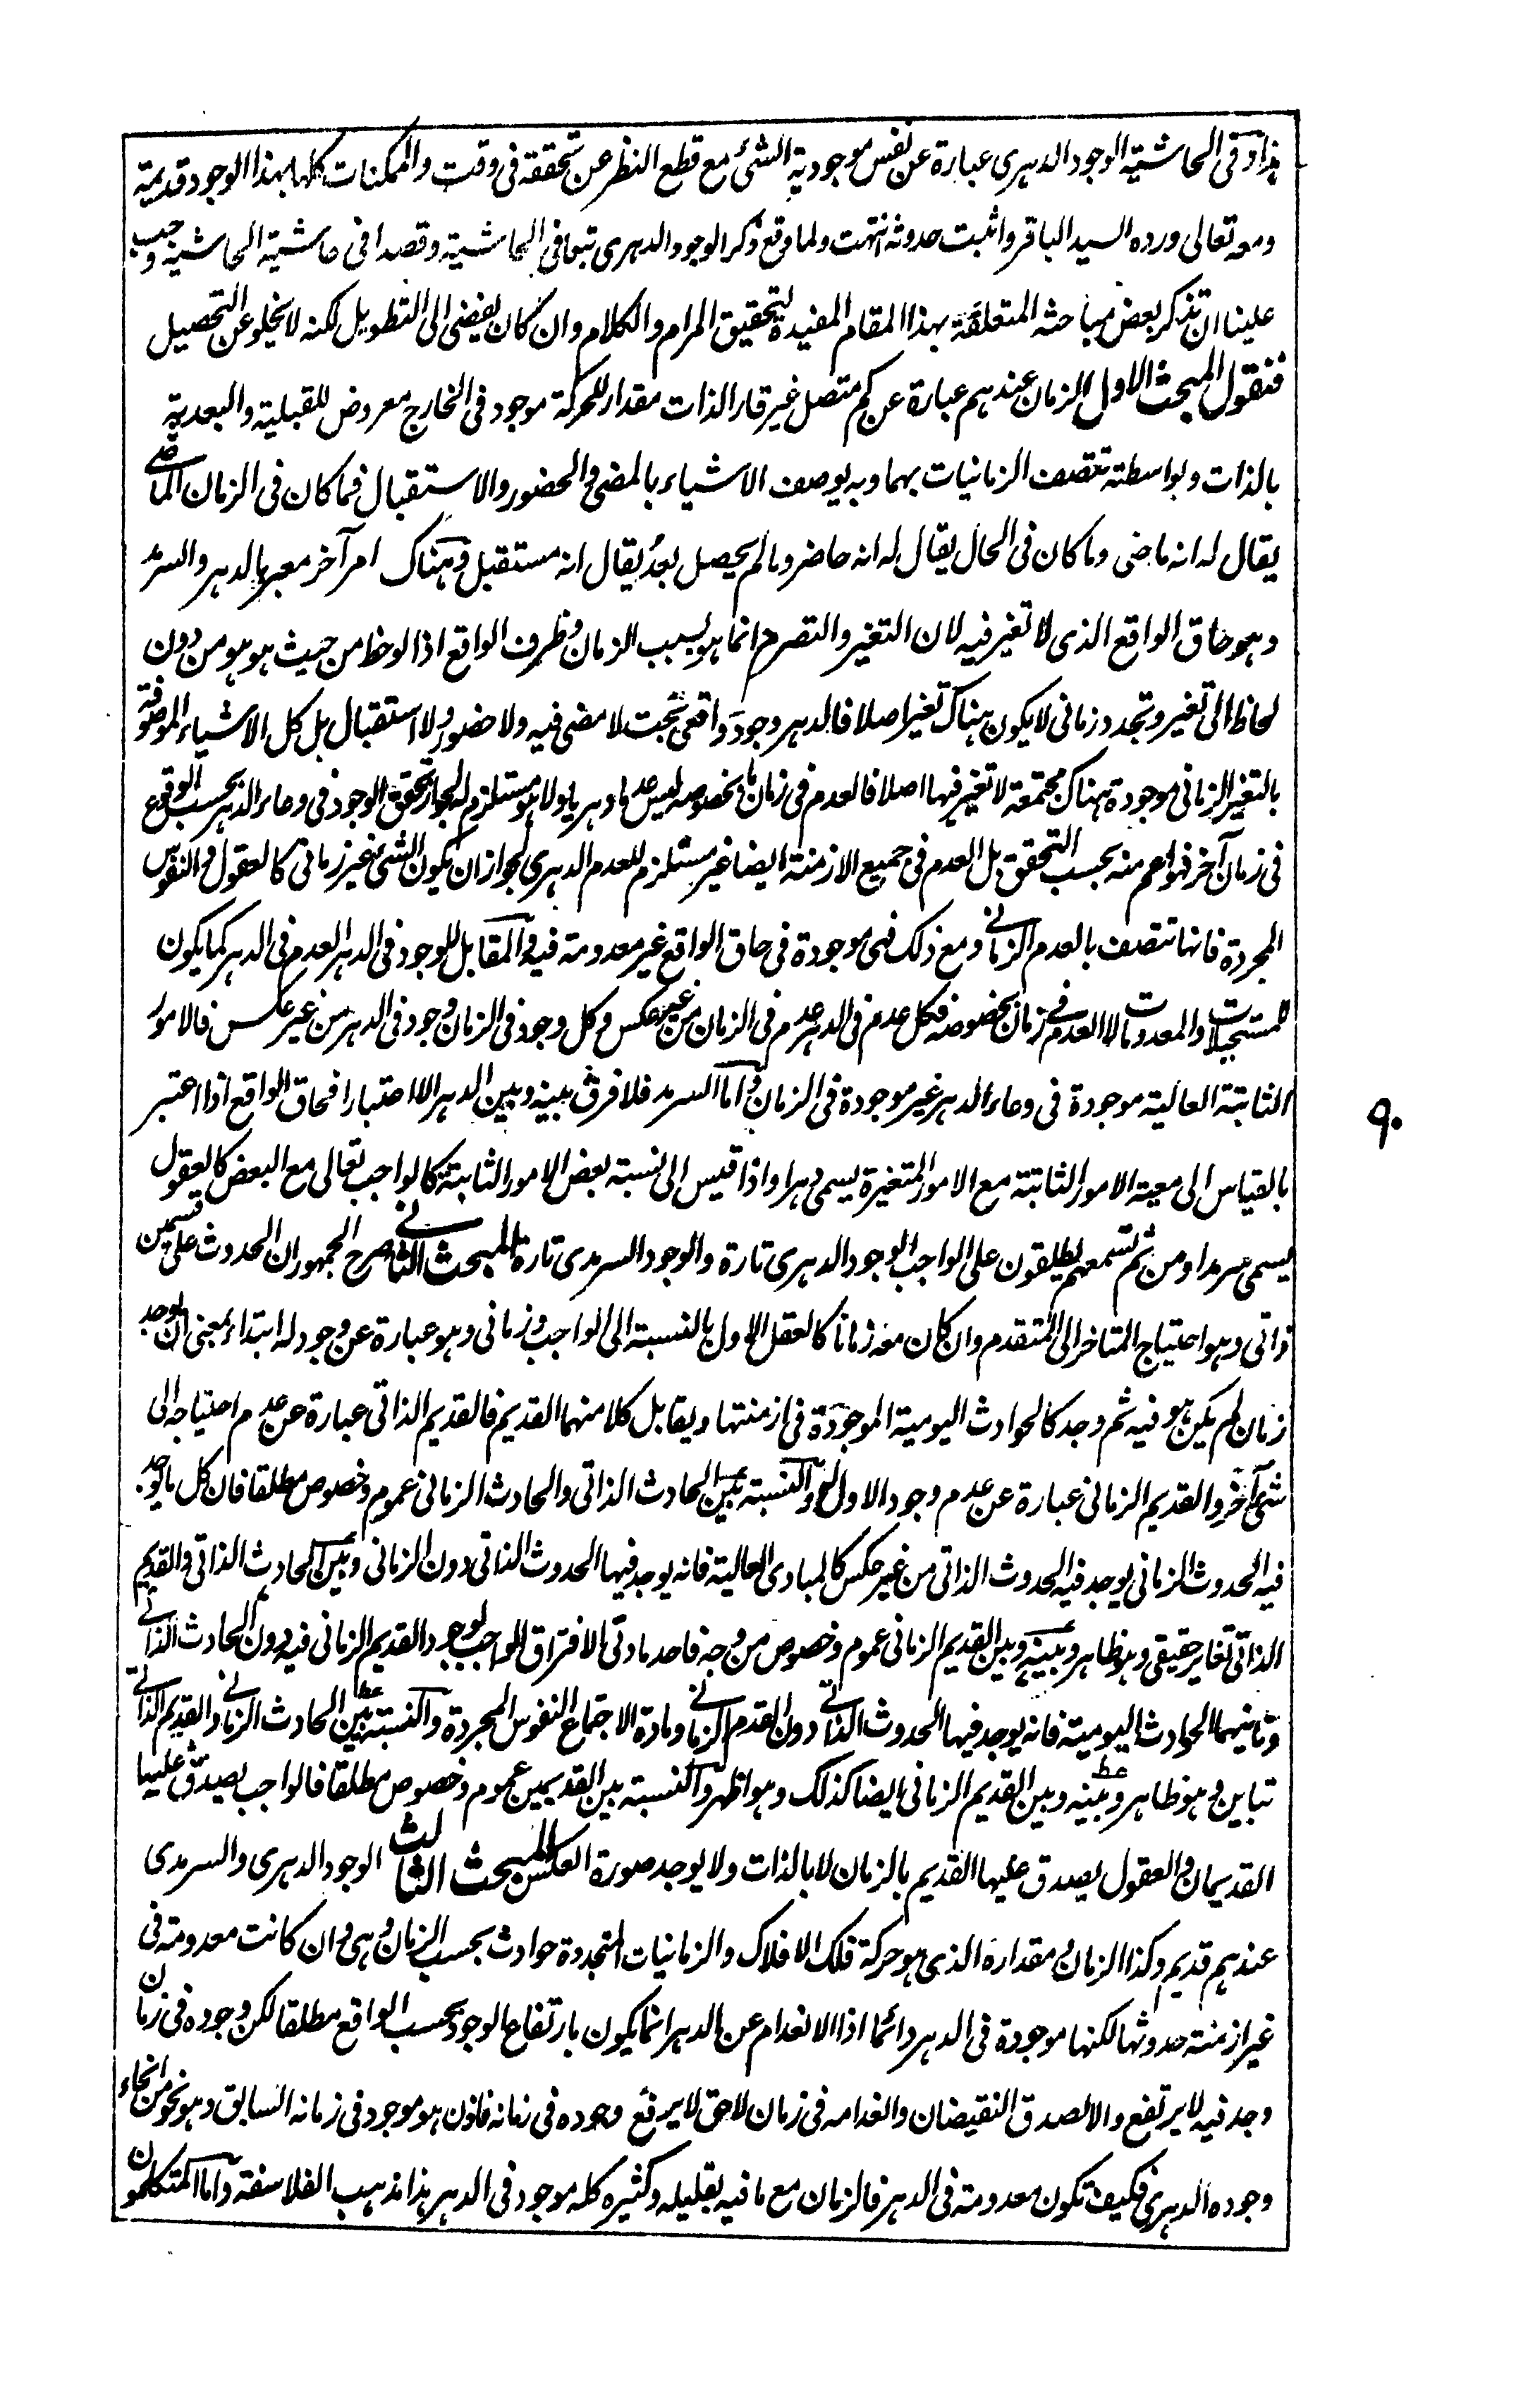 هذا و فى الحاشية الوجود الدهرى عبارة عن نفس موجودية الشئ مع قطع النظر عن تحققه فى وقت والممكنات كلها بهذا الوجود قديمة
ومعه تعالى ورده السيد الباقر واثبت حدوثه انتهت ولما وقع ذكر الوجود الدهرى تبعا فى الحاشية وقصدا فى حاشية الحاشية وجب
علينا ان نذكر بعض مباحثه المتعلقة بهذا المقام المفيدة لتحقيق المرام والكلام وان كان يفضى الى التطويل لكنه لا يخلو عن التحصيل
فنقول المبحث الاول الزمان عندهم عبارة عن كم متصل غير قار الذات مقدار للحركة موجود فى الخارج معروض للقبلية والبعدية
بالذات وبواسطته تتصف الزمانيات بهما وبه يوصف الاشياء بالمضى والحضور والاستقبال فما كان فى الزمان الماضى
يقال له انه ماضى وما كان فى الحال يقال له انه حاضر وما لم يحصل بعد يقال انه مستقبل وهناك امر آخر معبر بالدهر والسرمد
وهو حاق الواقع الذى لا تغير فيه لان التغير والتصرم انما هو بسبب الزمان وظرف الواقع اذا لوحظ من حيث هو هو من دون
لحاظ الى تغير وتجدد زمانى لا يكون هناك تغير اصلا فالدهر وجود واقعى بحت لا مضى فيه ولا حضور ولا استقبال بل كل الاشياء الموصوفة
بالتغير الزمانى موجودة هناك مجتمعة لا تغير فيها اصلا فالعدم فى زمان ما بخصوصه ليس عدما دهريا ولا هو مستلزم له لجواز تحقق الوجود فى وعاء الدهر بحسب الوقوع
فى زمان آخر فهو اعم منه بحسب التحقق بل العدم فى جميع الازمنة ايضا غير مستلزم للعدم الدهرى لجواز ان يكون الشئ غير زمانى كالعقول والنفوس
المجردة فانها تتصف بالعدم الزمانى ومع ذلك فهى موجودة فى حاق الواقع غير معدومة فيه والمقابل للوجود فى الدهر العدم فى الدهر كما يكون
للمستحيلات والمعدومات لا العدم فى زمان بخصوصه فكل عدم فى الدهر عدم فى الزمان من غير عكس وكل وجود فى الزمان وجود فى الدهر من غير عكس فالامور
الثابتة العالية موجودة فى وعاء الدهر غير موجودة فى الزمان واما السرمد فلا فرق بينه وبين الدهر الا اعتبارا فحاق الواقع اذا اعتبر
بالقياس الى معية الامور الثابتة مع الامور المتغيرة يسمى دهرا واذا قيس الى نسبة بعض الامور الثابتة كالواجب تعالى مع البعض كالعقول
يسمى سرمدا ومن ثم تسمعهم يطلقون على الواجب الوجود الدهرى تارة والوجود السرمدى تارة المبحث الثانى صرح الجمهور ان الحدوث على قسمين
ذاتى وهو احتياج المتاخر الى المتقدم وان كان معه زمانا كالعقل الاول بالنسبة الى الواجب وزمانى وهو عبارة عن وجود له ابتداء بمعنى ان يوجد
زمان لم يكن هو فيه ثم وجد كالحوادث اليومية الموجودة فى ازمنتها ويقابل كلا منهما القديم فالقديم الذاتى عبارة عن عدم احتياجه الى
شئ آخر والقديم الزمانى عبارة عن عدم وجود الاول له والنسبة بين الحادث الذاتى والحادث الزمانى عموم وخصوص مطلقا فان كل ما يوجد
فيه الحدوث الزمانى يوجد فيه الحدوث الذاتى من غير عكس كالمبادى العالية فانه يوجد فيها الحدوث الذاتى دون الزمانى وبين الحادث الذاتى والقديم
الذاتى تغاير حقيقى وهو ظاهر وبينه وبين القديم الزمانى عموم وخصوص من وجه فاحد مادتى الافتراق الواجب لوجود القديم الزمانى فيه دون الحادث الذاتى
وثانيهما الحوادث اليومية فانه يوجد فيها الحدوث الذاتى دون القدم الزمانى ومادة الاجتماع النفوس المجردة والنسبة بين الحادث الزمانى والقديم الذاتى
تباين وهو ظاهر وبينه وبين القديم الزمانى ايضا كذلك وهو اظهر والنسبة بين القديمين عموم وخصوص مطلقا فالواجب يصدق عليه
القديمان والعقول يصدق عليها القديم بالزمان لا بالذات ولا يوجد صورة العكس المبحث الثالث الوجود الدهرى والسرمدى
عندهم قديم وكذا الزمان ومقداره الذى هو حركة فلك الافلاك والزمانيات المتجددة حوادث بحسب الزمان وهى وان كانت معدومة فى
غير ازمنة حدوثها لكنها موجودة فى الدهر دائما اذ الانعدام عن الدهر انما يكون بارتفاع الوجود بحسب الواقع مطلقا لكن وجوده فى زمان
وجد فيه لا يرتفع والا لصدق النقيضان وانعدامه فى زمان لاحق لا يرفع وجوده فى زمانه فاذن هو موجود فى زمانه السابق وهو نحو من انحاء
وجوده الدهرى فكيف تكون معدومة فى الدهر فالزمان مع ما فيه بقليله وكثيره كله موجود فى الدهر هذا مذهب الفلاسفة واما المتكلمون
٩٠